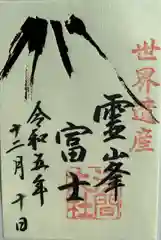 世界遺産
霊峯
富士
令和五年
十二月十日